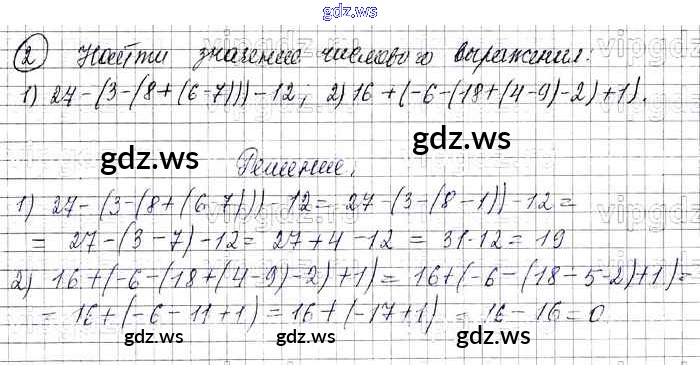 gdz.ws
② Найти значение числового выражения.
1) 27-(3-(8+(6-7)))-12; 2) 16+(-6-(18+(4-9)-2)+1).
gdz.ws
gdz.ws
Решение.
1) 27-(3-(8+(6-7)))-12= 27-(3-(8-1))-12=
= 27-(3-7)-12= 27+4-12= 31-12= 19
2) 16+(-6-(18+(4-9)-2)+1)= 16+(-6-(18-5-2)+1)=
= 16+(-6-11+1)= 16+(-17+1) = 16-16=0
gdz.ws
gdz.ws
gdz.ws